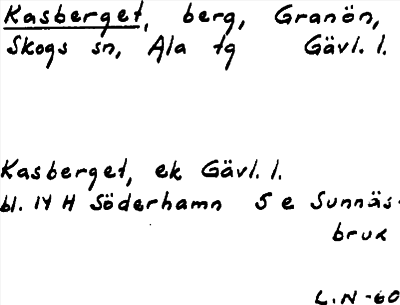 Kasberget, berg, Granön,
Skogs sn, Ala tg Gävl. l.
Kasberget, ek Gävl. l.
bl. 14 H Söderhamn 5 e Sunnäs-
bruk
L.N -60